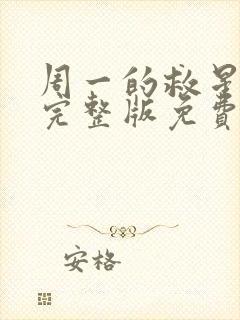 周一的救星
完整版免费
安格